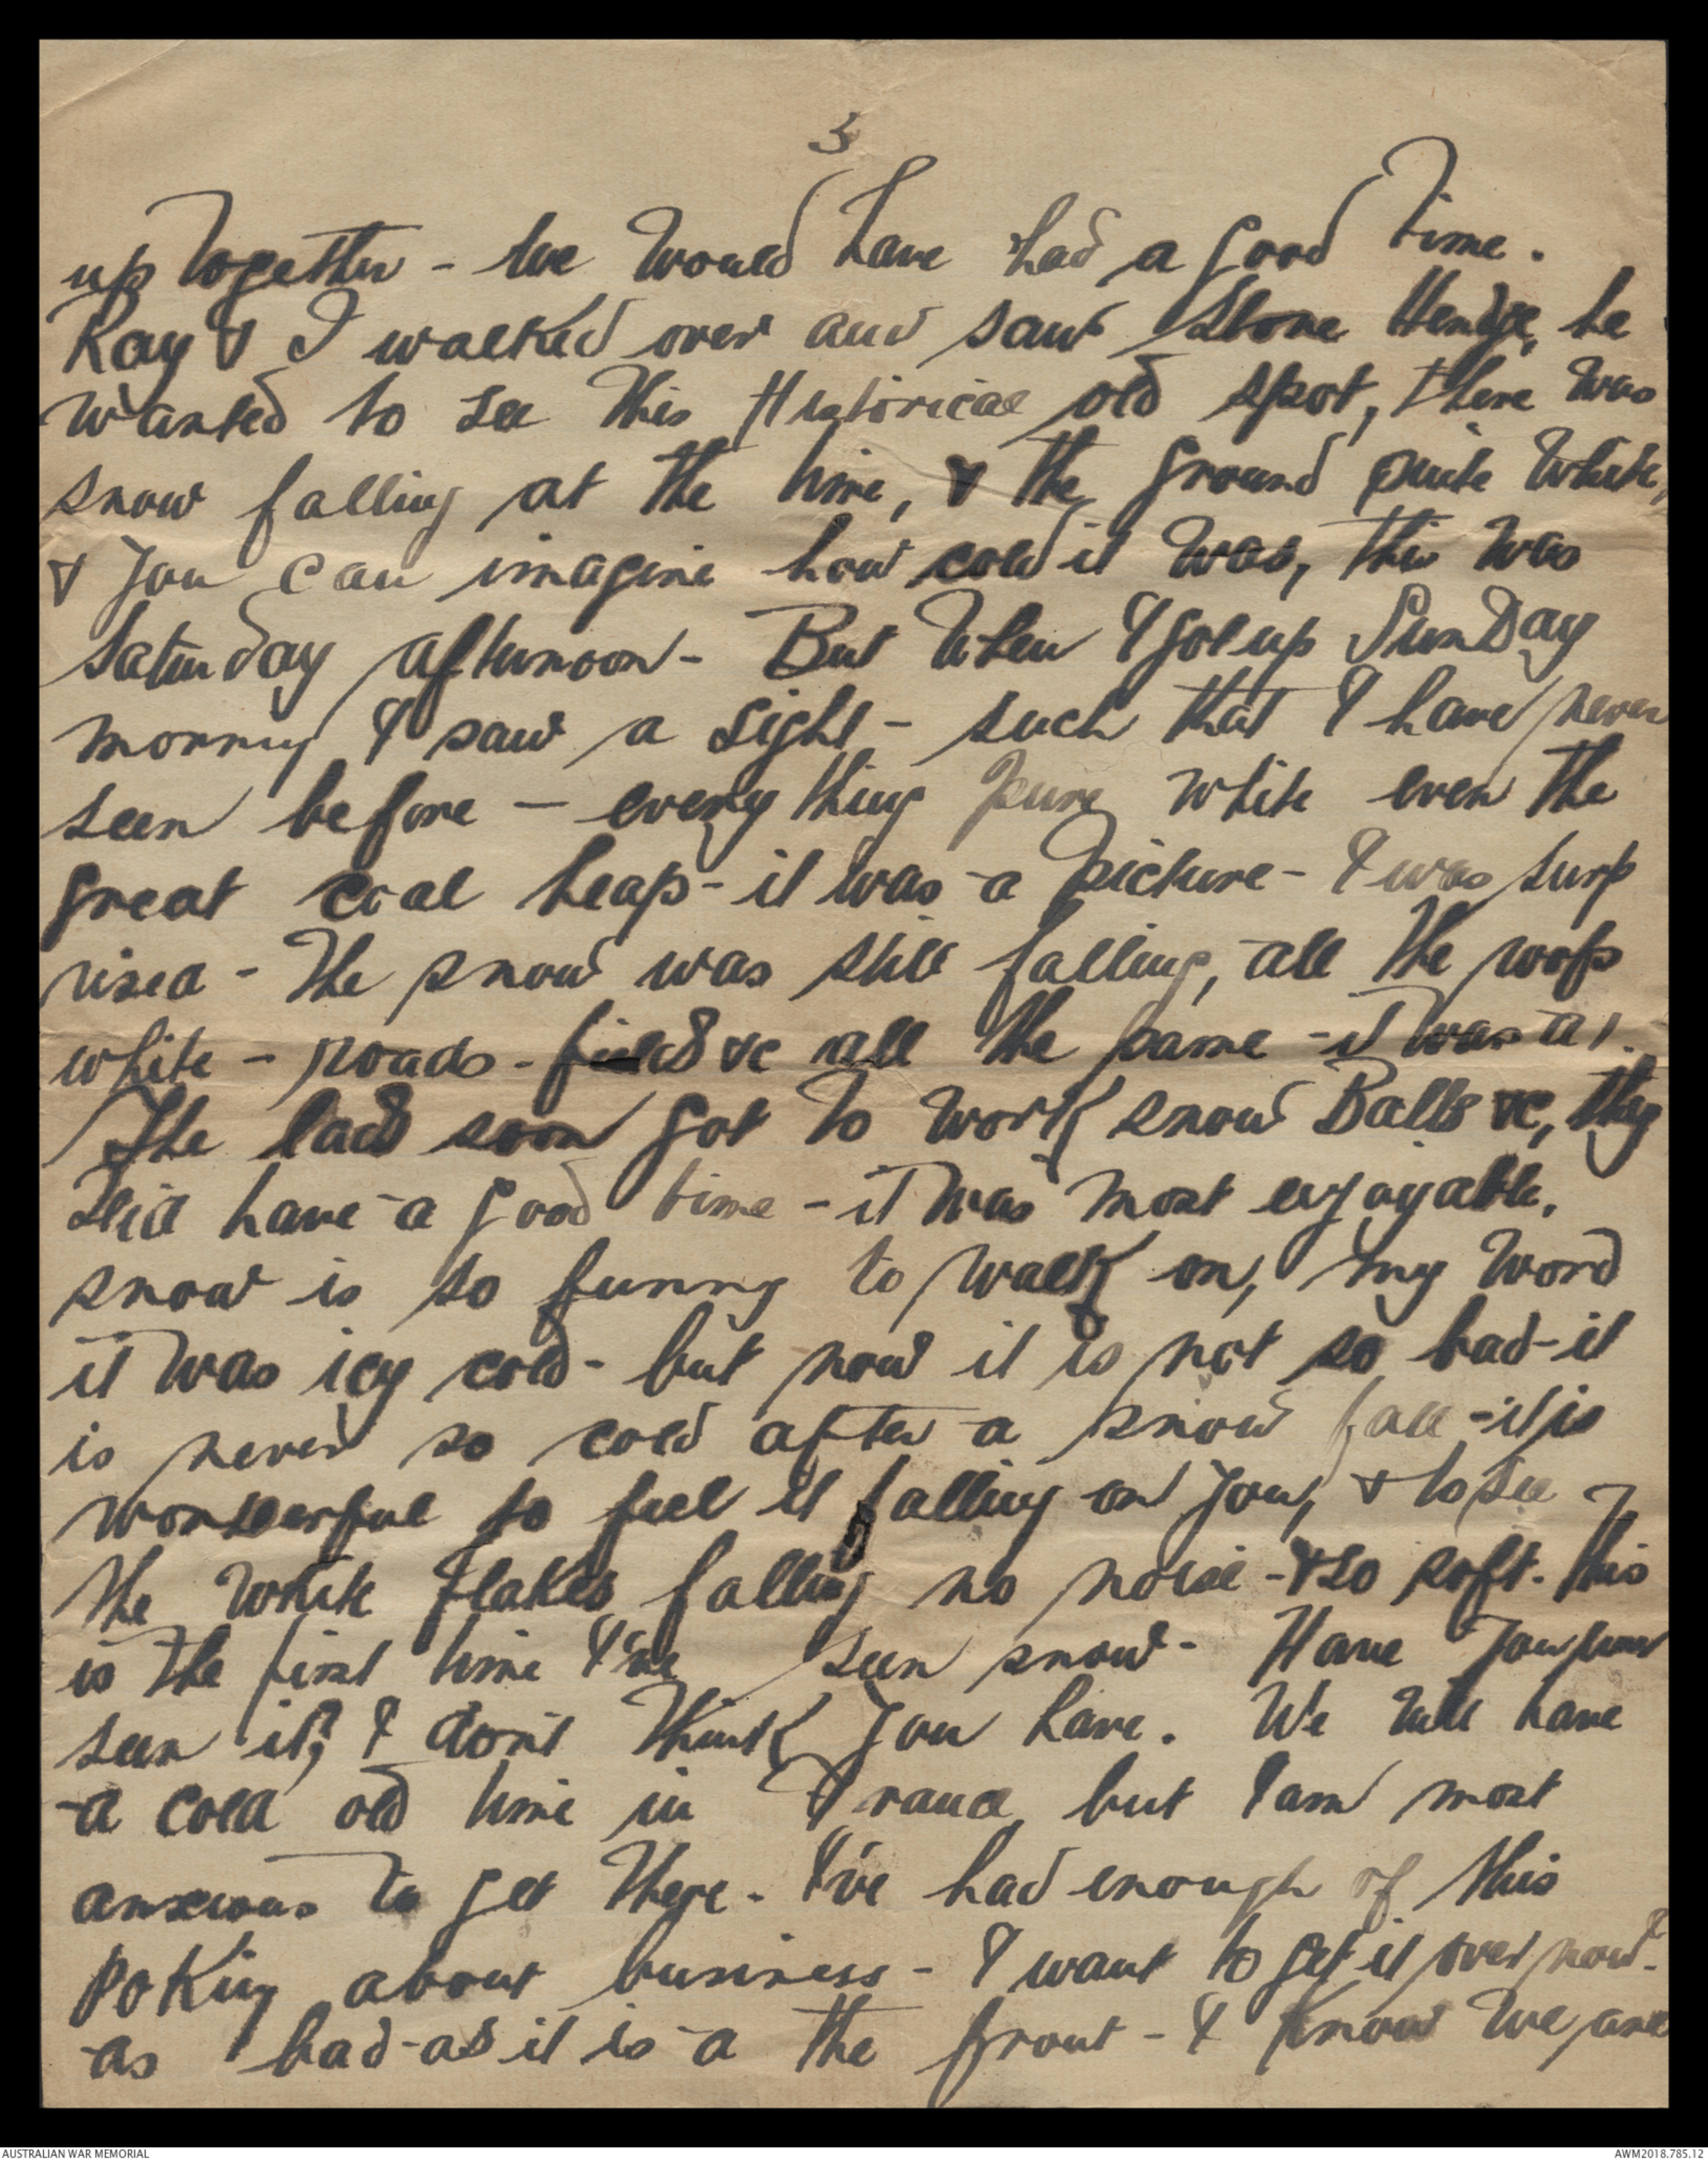 3
up together - we would have had a good time.
Ray & I walked over and saw Stone Henge, he
wanted to see this Historical old spot, there was
snow falling at the time, & the ground quite white,
& you can imagine how cold it was, this was
Saturday afternoon - But when I got up Sunday
morning I saw a sight - such that I have never
seen before - everything pure white even the
great coal heap - it was a picture - I was surp
rised - The snow was still falling, all the roofs
white - roads - fields &c all the same - it was a1.
The lads soon got to work snow Balls &c, they
did have a good time - it was most enjoyable.
snow is so funny to walk on, my word
it was icy cold - but now it is not so bad - it
is never so cold after a snow fall - it is
wonderful to feel it falling on you, & to see
the white flakes falling no noise - & so soft. This
is the first time I've seen snow - Have you ever
seen it? I don't think you have. We will have
a cold old time in France but I am most
anxious to get there. I've had enough of this
poking about business - I want to get it over now.
as bad as it is a the front - I know we are
AUSTRALIAN WAR MEMORIAL
AWM2018.785.12